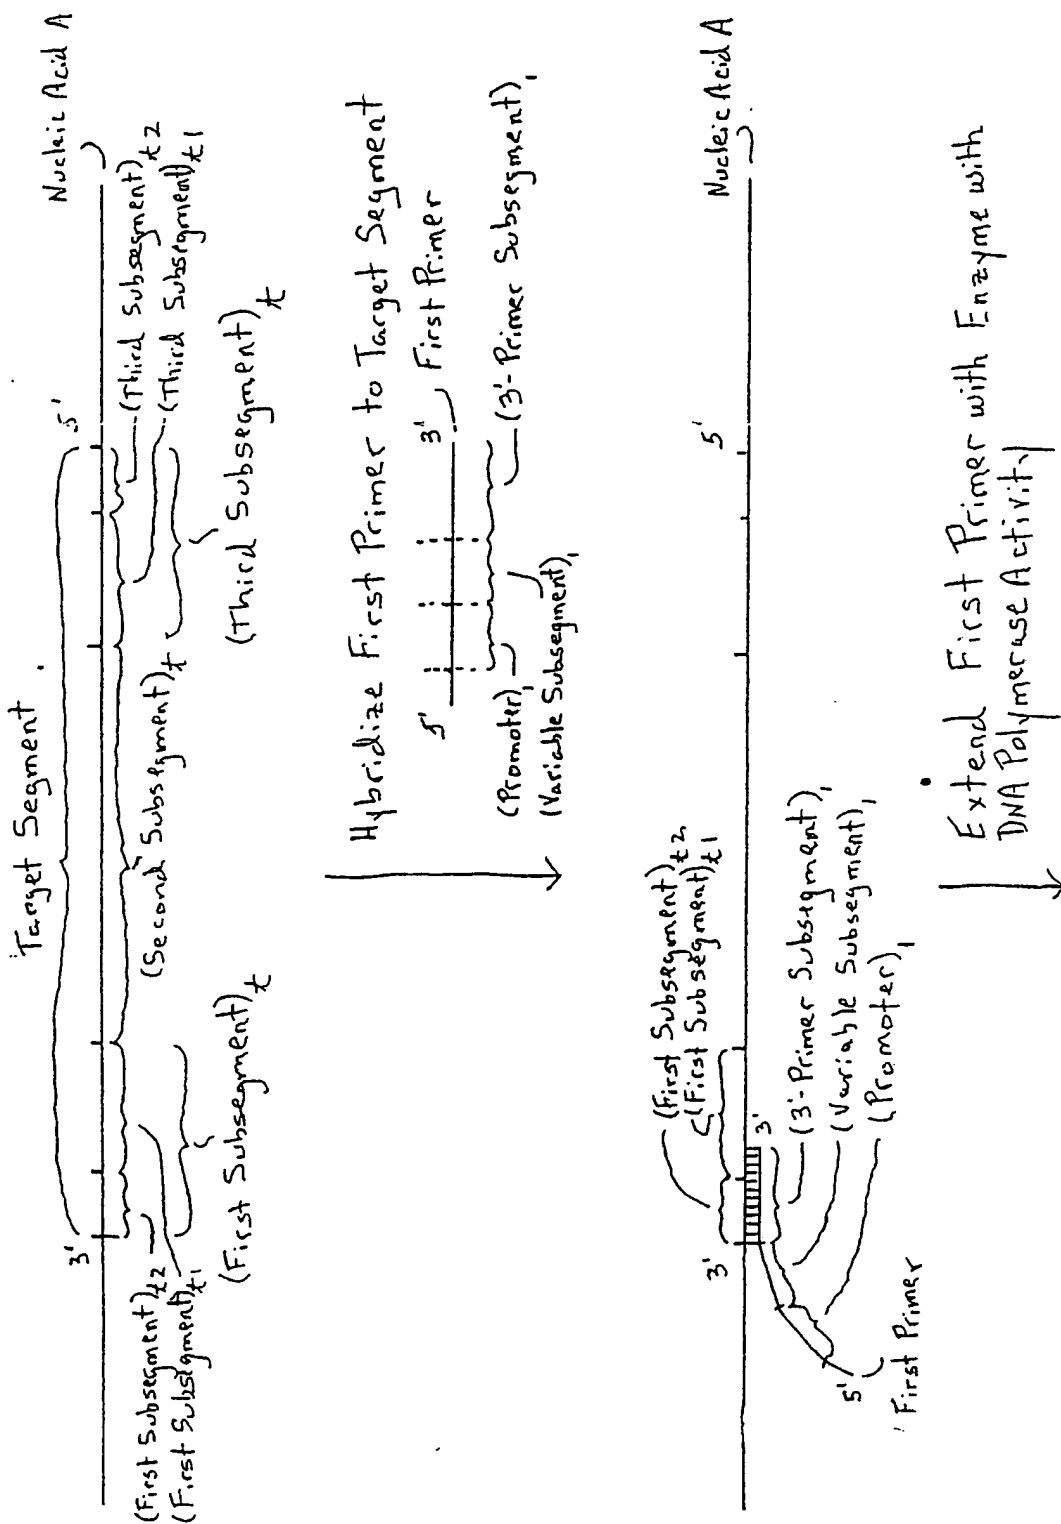 Target Segment
Nucleic Acid A
3'
5'
(First Subsegment)t2
(First Subsegment)t1
(First Subsegment)t
(Second Subsegment)t
(Third Subsegment)t2
(Third Subsegment)t1
(Third Subsegment)t
Hybridize First Primer to Target Segment
5'
3'
First Primer
(Promoter)1
(Variable Subsegment)1
(3'-Primer Subsegment)1
Nucleic Acid A
3'
5'
(First Subsegment)t2
(First Subsegment)t1
3'
(3'-Primer Subsegment)1
(Variable Subsegment)1
(Promoter)1
5'
First Primer
Extend First Primer with Enzyme with
DNA Polymerase Activity